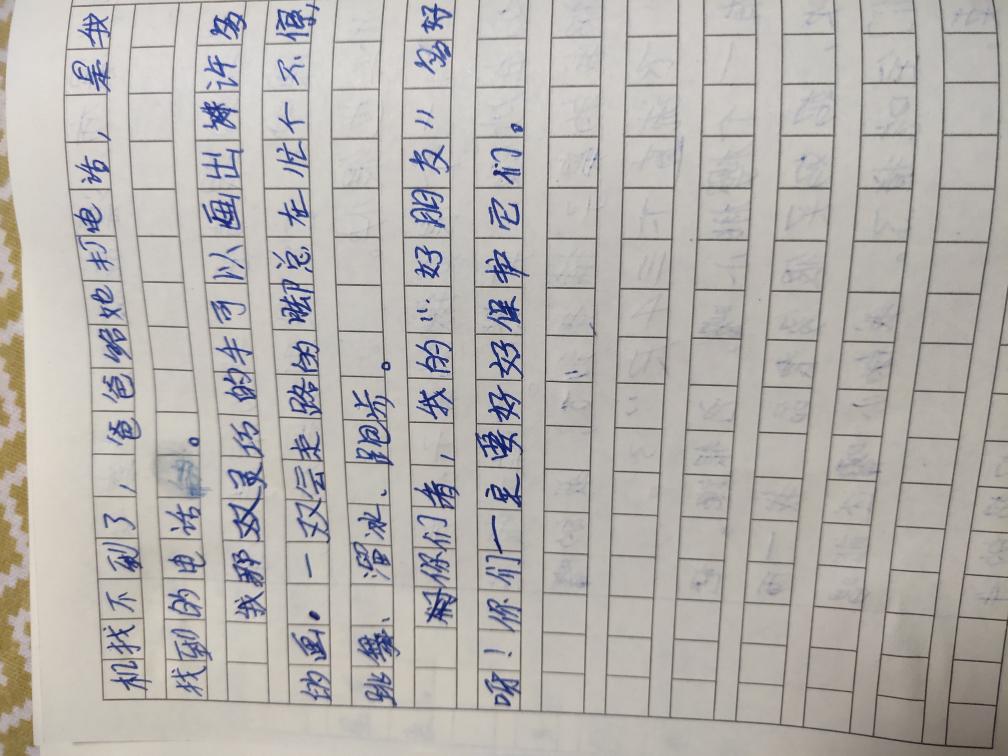 机找不到了，爸爸给她打电话，是我
找到的电话。
我那双灵巧的手可以画出许多
的画。一双会走路的脚总在忙个不停，
跳舞、溜冰、跑步。
你们看，我的“好朋友”多好
呀！你们一定要好好保护它们。